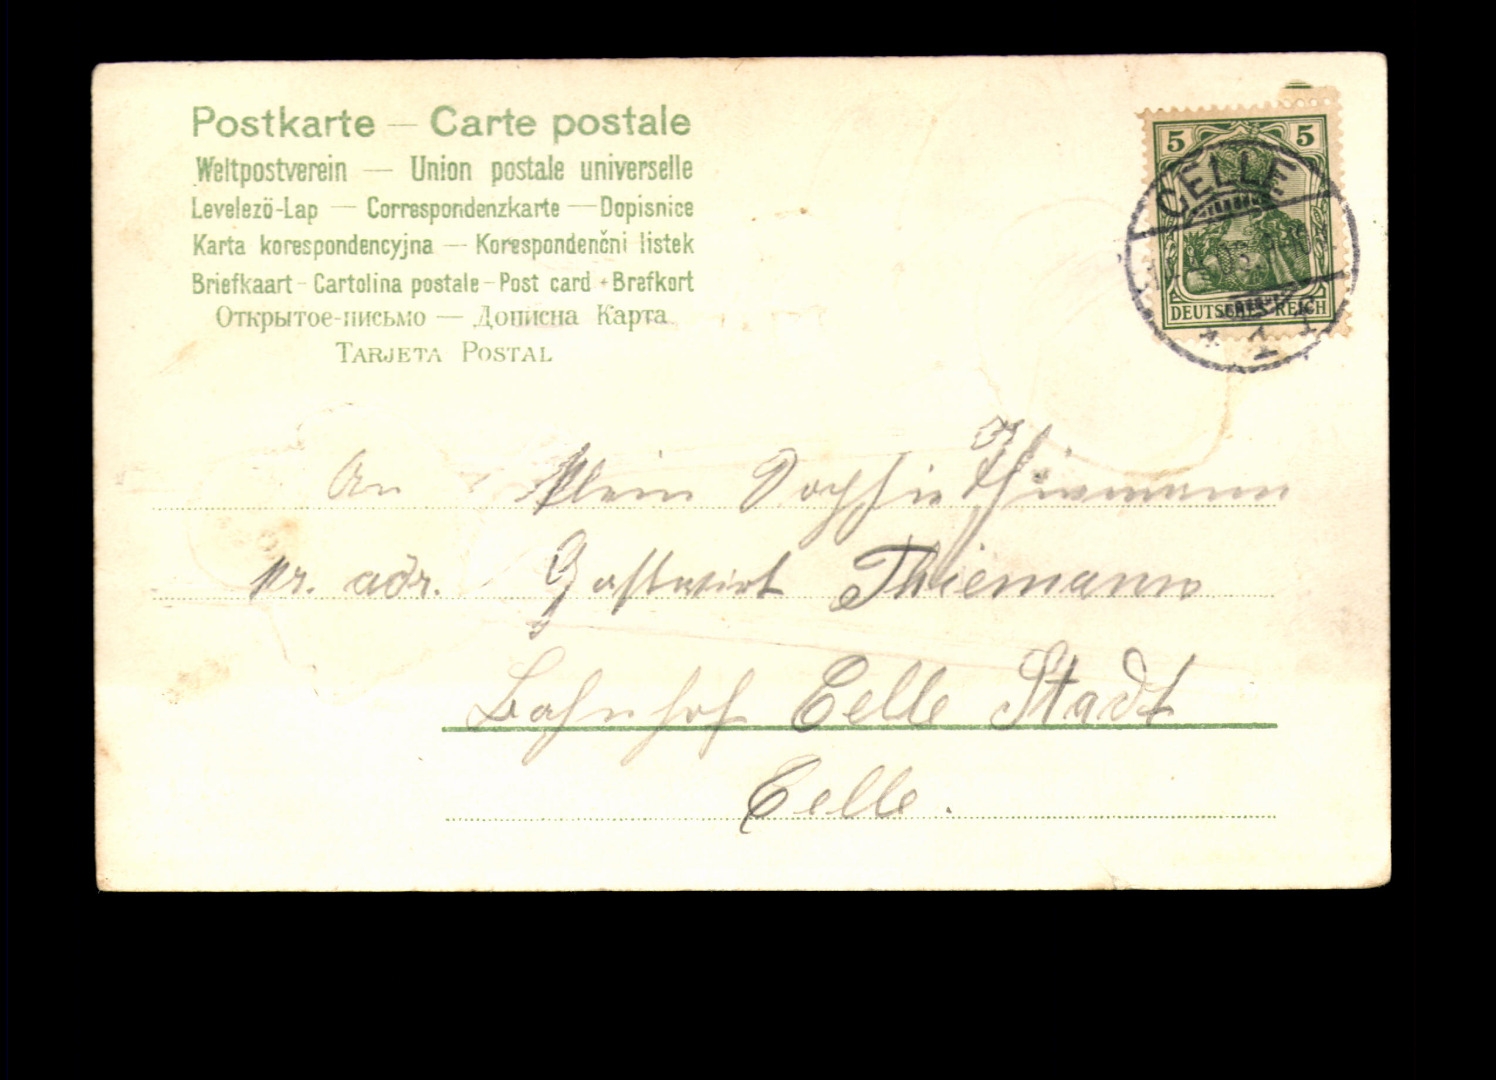 Postkarte — Carte postale
Weltpostverein — Union postale universelle
Levelezö-Lap — Correspondenzkarte — Dopisnice
Karta korespondencyjna — Korespondenčni listek
Briefkaart - Cartolina postale - Post card - Brefkort
Открытое-письмо — Дописна Карта
Tarjeta Postal
5 5
CELLE
DEUTSCHES REICH
* 1
An Klein Sophie Thiemann
pr. adr. Gastwirt Thiemann
Bahnhof Celle Stadt
Celle.